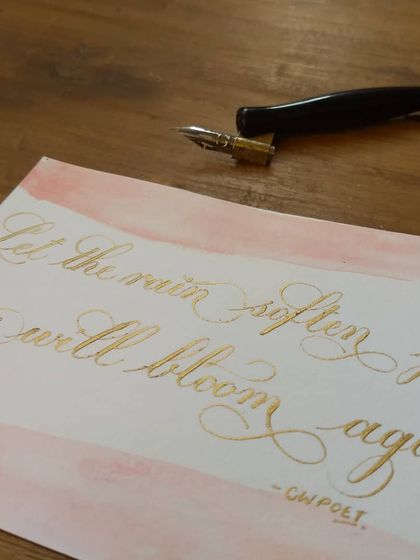 Let the rain soften
will bloom
- CWPOET